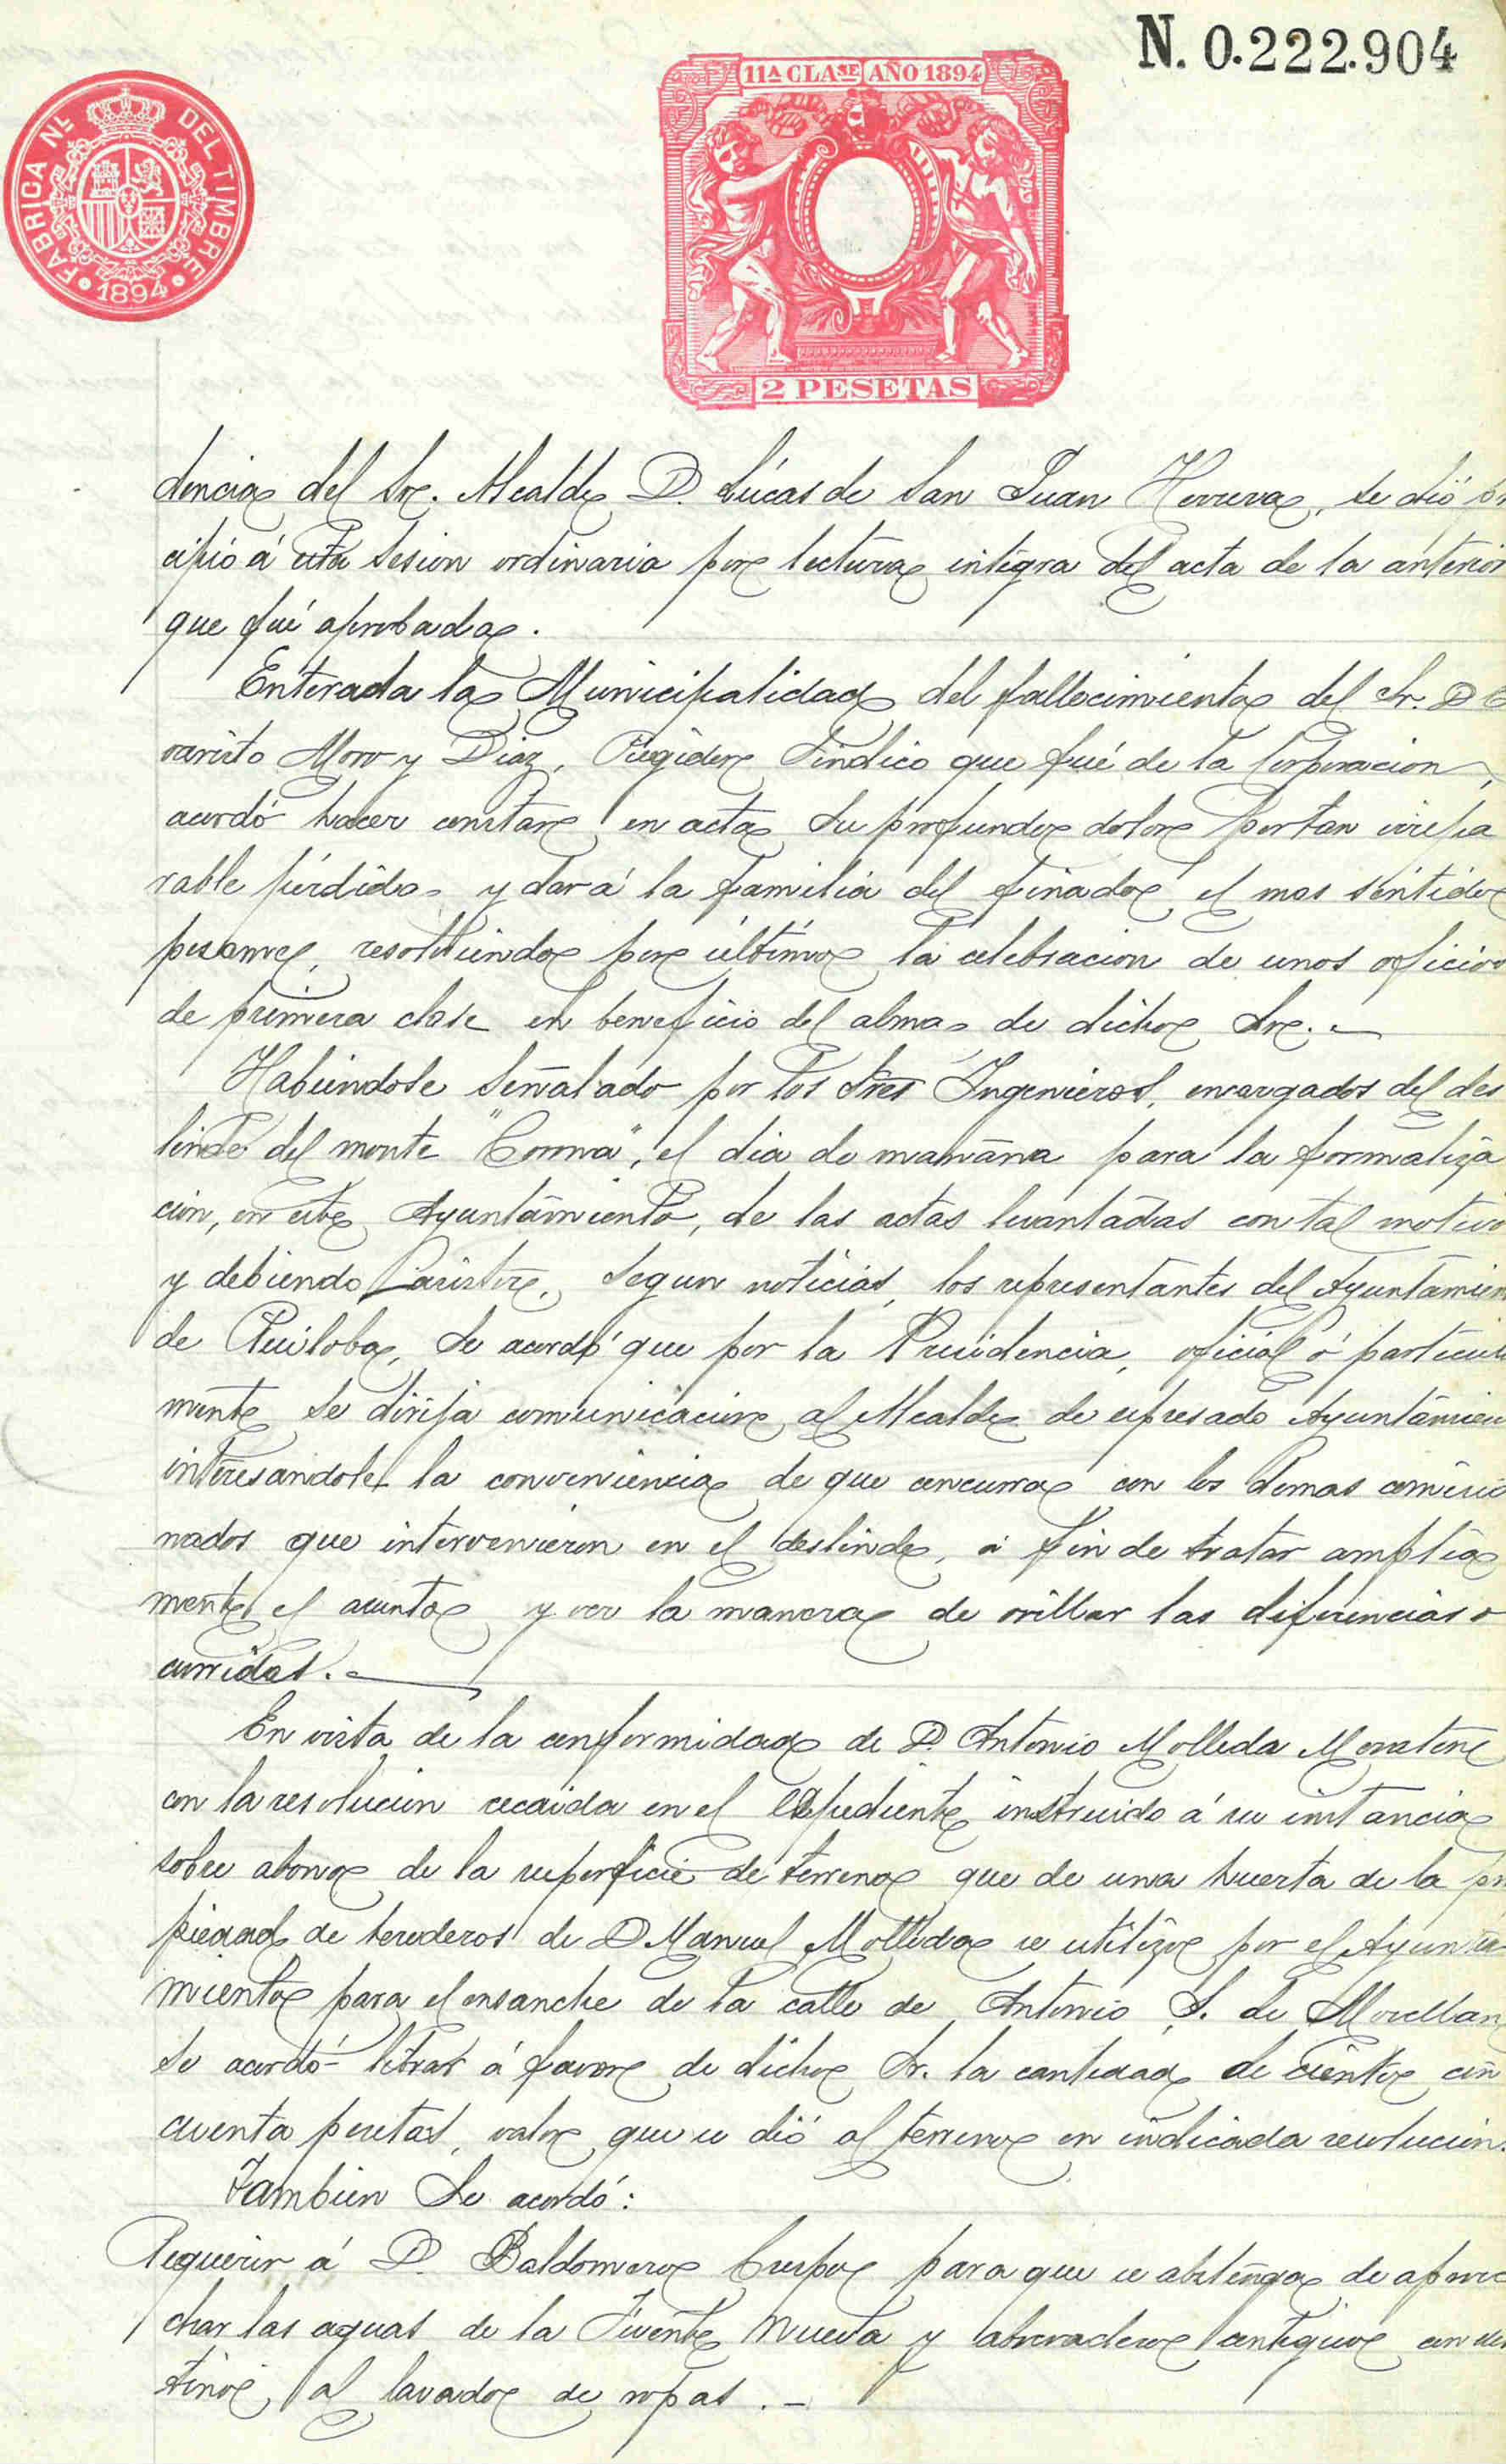 N. 0.222.904
11A CLASE AÑO 1894
FABRICA NL DEL TIMBRE
1894
2 PESETAS
dencia del Sr. Alcalde D. Lúcas de San Juan Herrera, se dió prin
cipio á esta sesion ordinaria por lectura integra del acta de la anterior
que fué aprobada.
Enterada la Municipalidad del fallecimiento del Sr. D. E
varisto Moro y Diaz, Regidor Síndico que fué de la Corporacion,
acordó hacer constar en acta su profundo dolor por tan irrepa
rable pérdida y dar á la familia del finado el mas sentido
pesame, resolviendo por último la celebracion de unos oficios
de primera clase en beneficio del alma de dicho Sr.
Habiendose señalado por los Sres Ingenieros, encargados del des
linde del monte "Corona", el dia de mañana para la formaliza
cion, en este Ayuntamiento, de las actas levantadas con tal motivo
y debiendo asistir, segun noticias, los representantes del Ayuntamien
de Ruiloba, se acordó que por la Presidencia, oficial ó particular
mente se dirija comunicacion al Alcalde de espresado Ayuntamien
interesandole la conveniencia de que concurra con los demas comisio
nados que intervenieron en el deslinde, á fin de tratar amplia
mente el asunto y ver la manera de orillar las diferencias o
curridas.
En vista de la conformidad de D. Antonio Molleda
con la resolucion recaida en el expediente instruido á su instancia
sobre abono de la superficie de terreno que de una huerta de la pro
piedad de herederos de D Manuel Molleda se utilizó por el Ayunta
miento para el ensanche de la calle de Antonio S. de Movellan
se acordó librar á favor de dicho Sr. la cantidad de ciento cin
cuenta pesetas, valor que se dió al terreno en indicada resolucion.
Tambien se acordó:
Requerir á D. Baldomero Crespo para que se abstenga de aprove
char las aguas de la Fuente Nueva y abrevadero antiguo con des
tino al lavado de ropas.